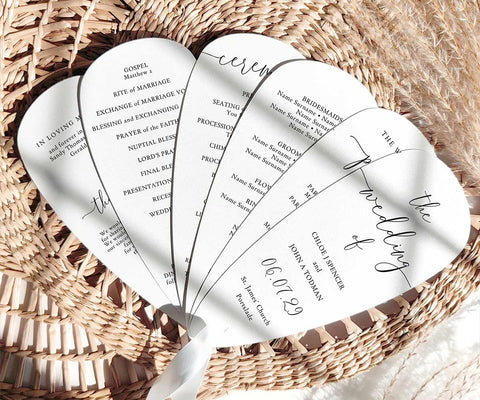 IN LOVING M
and forever in
Sandy Thomas
Gerald
the
We would
for sharin
GOSPEL
Matthew 2
RITE OF MARRIAGE
EXCHANGE OF MARRIAGE VO
BLESSING AND EXCHANGING
PRAYER OF THE FAITH
NUPTIAL BLESS
LORD'S PRA
FINAL BLE
PRESENTATION
RECES
WEDD
cerem
PRE
SEATING O
YOU
PROCESSION
PROC
CHR
DIS
BRIDESMAIDS
Name Surname • Name
Name Surname • Name
Name Surname
GROOM
Name Surname
Name Surname
FLOW
Name Surn
RIN
Name Surn
THE W
P
PAR
PAR
the
wedding
of
CHLOE J SPENCER
and
JOHN A TODMAN
06.07.29
St. James' Church
Portslade.